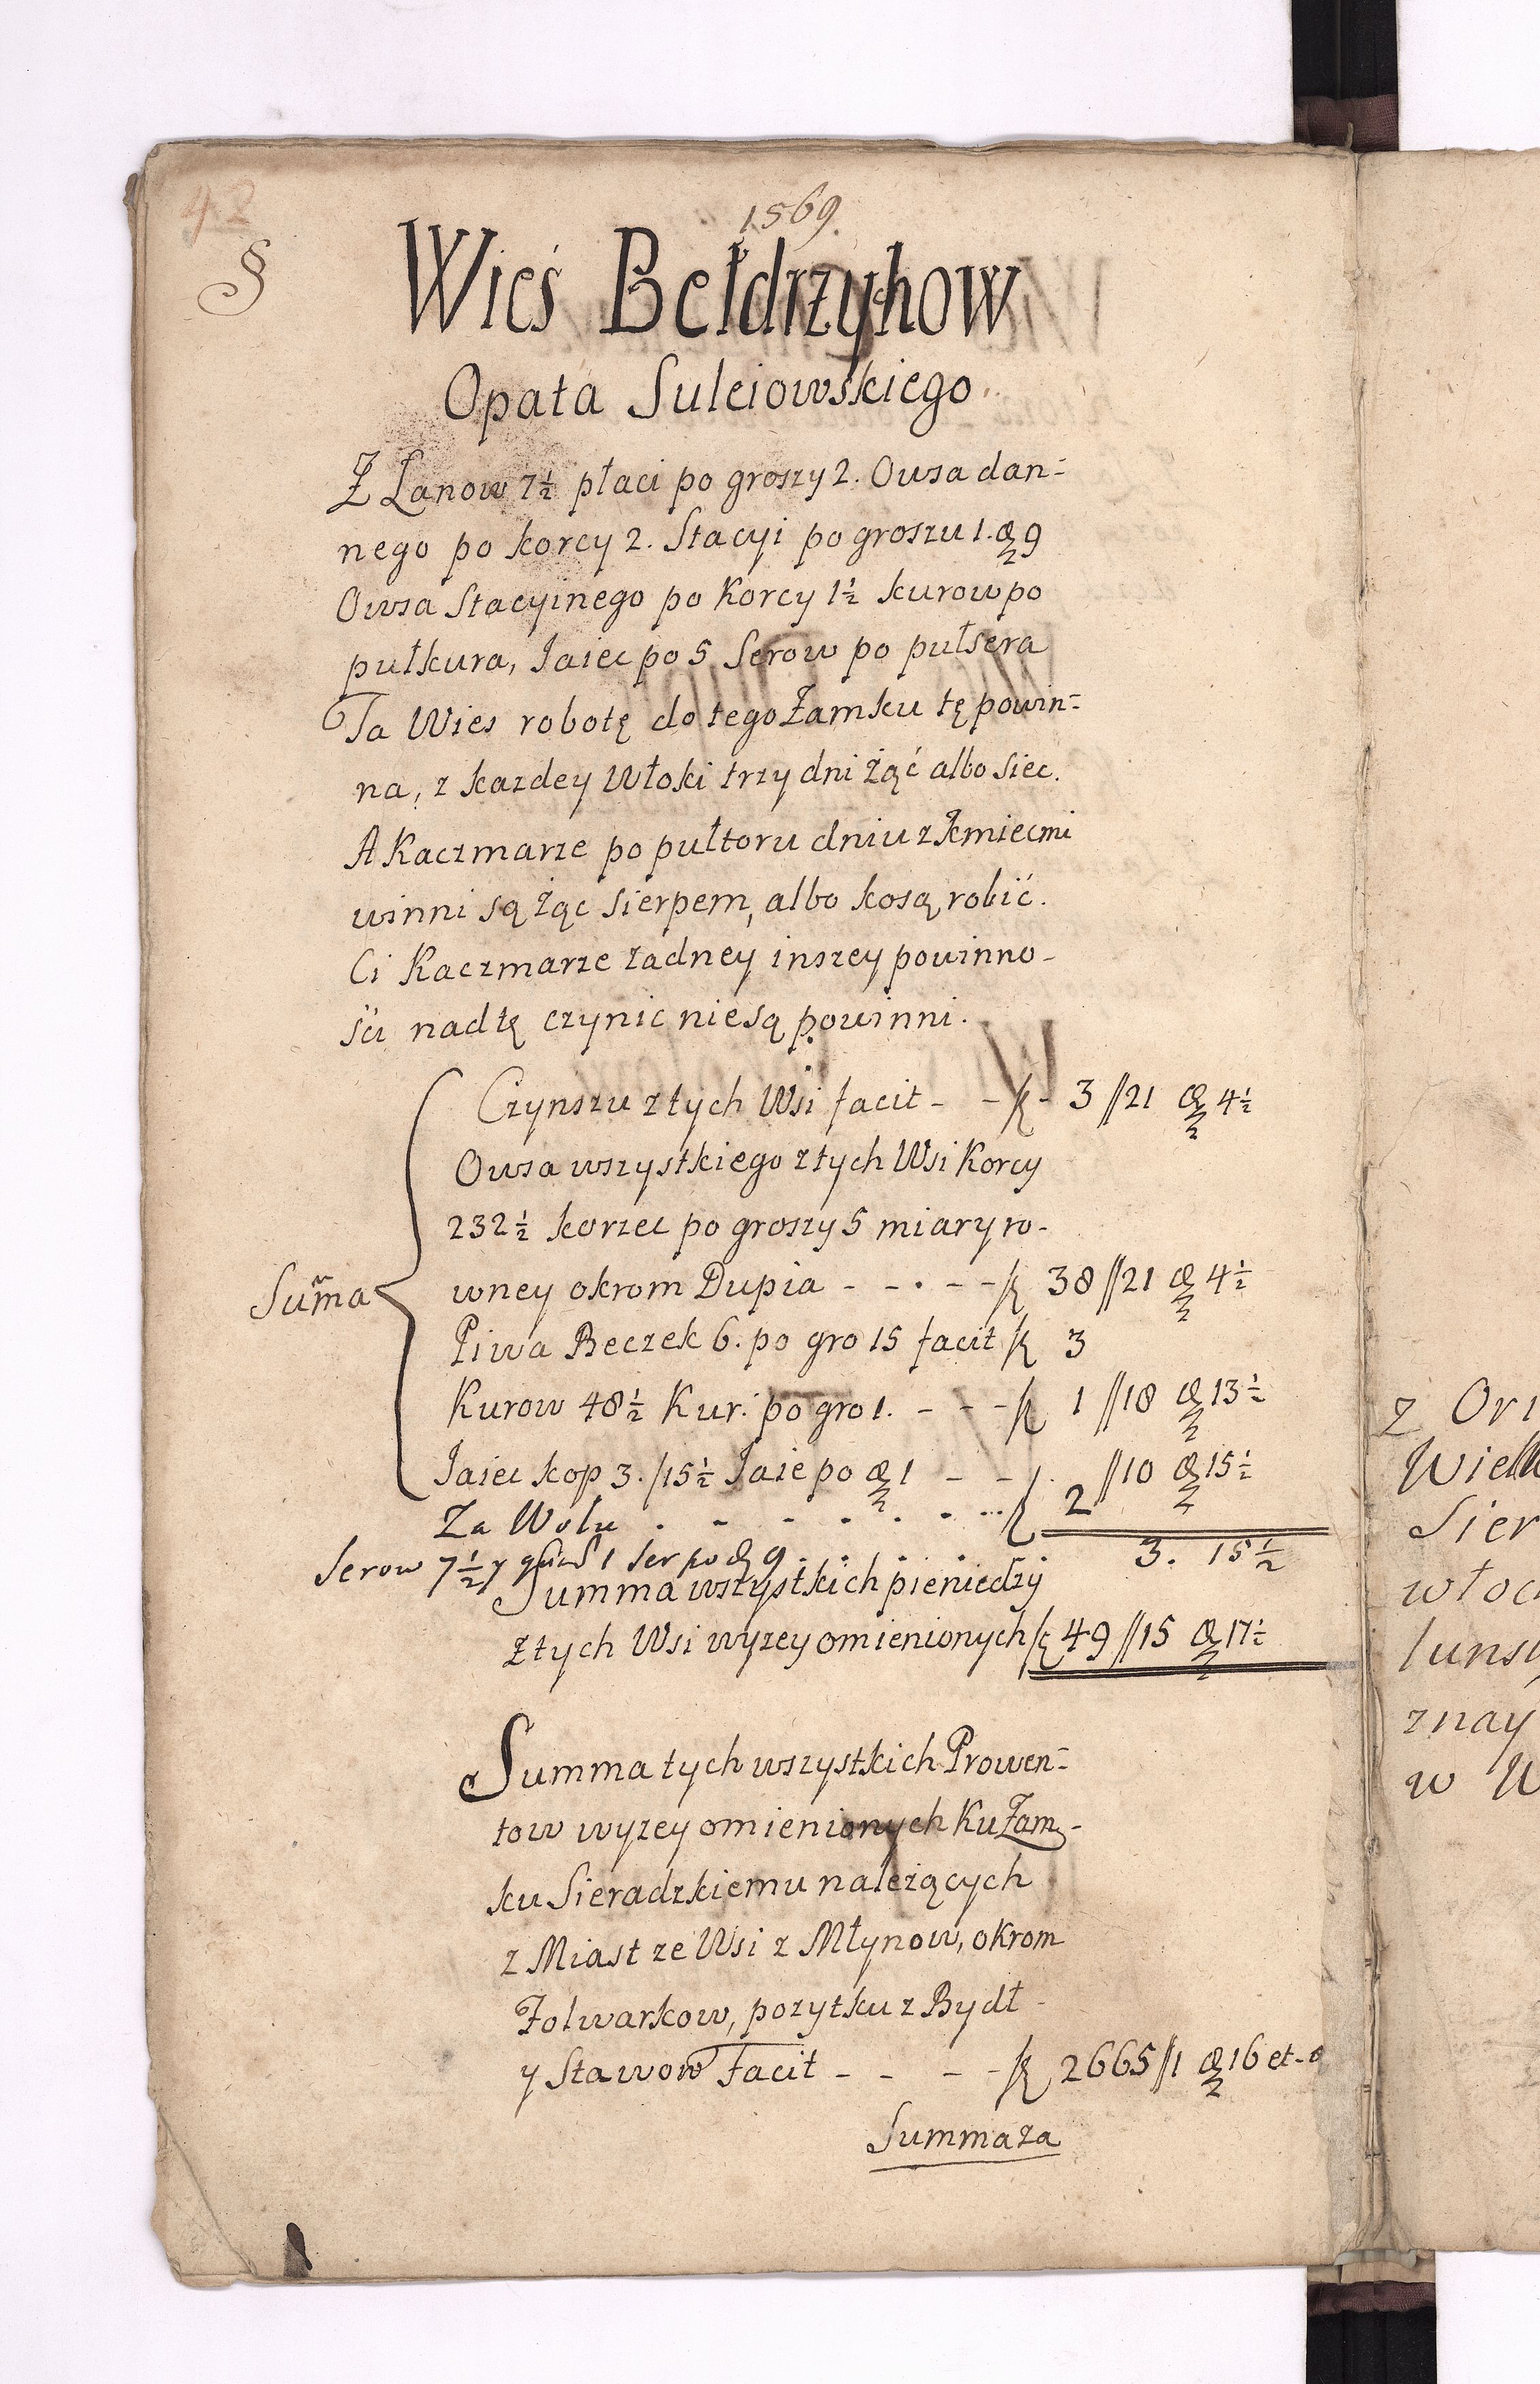 42
1569.
§
Wieś Bełdrzychow
Opata Suleiowskiego.
Z Łanow 7½ płaci po groszy 2. Owsa dan=
nego po korcy 2. Stacyi po groszu 1. ₰ 9
Owsa Stacyinego po Korcy 1½ kurow po
pułkura, Jaiec po 5 Serow po pułsera
Ta Wies robotę do tego Zamku tę powin=
na, z kazdey Włoki trzy dni Żąć albo siec.
A Kaczmarze po pułtoru dniu z Kmiecmi
winni są żąc sierpem, albo kosą robić.
Ci Kaczmarze zadney inszey powinno-
ści nad tę czynic nie są powinni.
Czynszu z tych Wsi facit - - 3 // 21 ₰ 4½
Owsa wszystkiego z tych Wsi Korcy
232½ korzec po groszy 5 miary ro-
wney okrom Dupia - - . - - 38 // 21 ₰ 4½
Sum̃a
Piwa Beczek 6. po gro 15 facit 3
Kurow 48½ Kur. po gro 1. - - - 1 // 18 ₰ 13½
Jaiec kop 3. /15½ Jaie po ₰ 1 - - . // 10 ₰ 15½
Za Wołu . - - . . . ... 2
Serow 7½ y 1 Ser po ₰ 9 . . . . 3. 15½
Summa wszystkich pieniedzy
z tych Wsi wyzey omienionych 49 // 15 ₰ 17½
Summa tych wszystkich Prowen=
tow wyzey omienionych Ku Zam-
ku Sieradzkiemu należących
z Miast ze Wsi z Młynow, okrom
Folwarkow, pozytku z Bydł -
y Stawow facit - - - - 2665 // 1 ₰ 16 et -
Summa za
z
Wielk
Sier
włoc
znay
w W